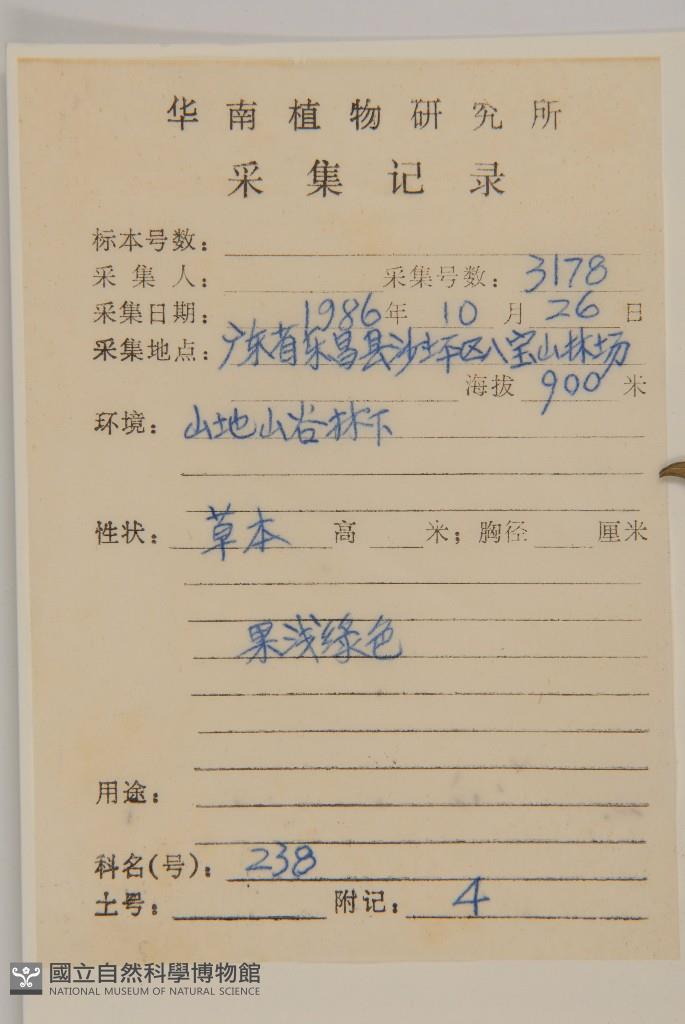 华南植物研究所
采集记录
标本号数：
采集人： 采集号数：3178
采集日期： 1986年 10月 26日
采集地点：广东省乐昌县沙坪区八宝山林场
海拔 900 米
环境： 山地山谷林下
性状： 草本 高 米；胸径 厘米
果浅绿色
用途：
科名(号)： 238
土号： 附记： 4
國立自然科學博物館
NATIONAL MUSEUM OF NATURAL SCIENCE